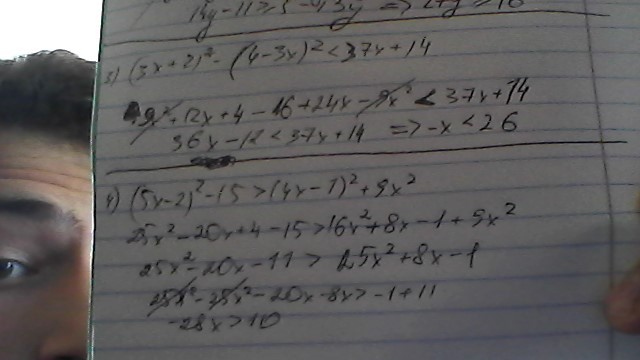 14y-11≥5-13y => 27y≥16
3) (3x+2)²-(4-3x)²<37x+14
9x²+12x+4-16+24x-9x²<37x+14
36x-12<37x+14 => -x<26
4) (5x-2)²-15>(4x-1)²+9x²
25x²-20x+4-15>16x²+8x-1+9x²
25x²-20x-11>25x²+8x-1
25x²-25x²-20x-8x>-1+11
-28x>10